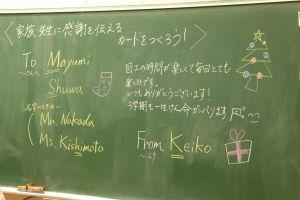 家族、先生に感謝を伝える
カードをつくろう!
To Mayumi
〜さんへ
Shuwa
名字のときは、
Mr. Nakada
Ms. Kishimoto
図工の時間が楽しくて毎回とても
楽しみです。
いつもありがとうございます!
3学期も一生けん命がんばります
From Keiko
〜より